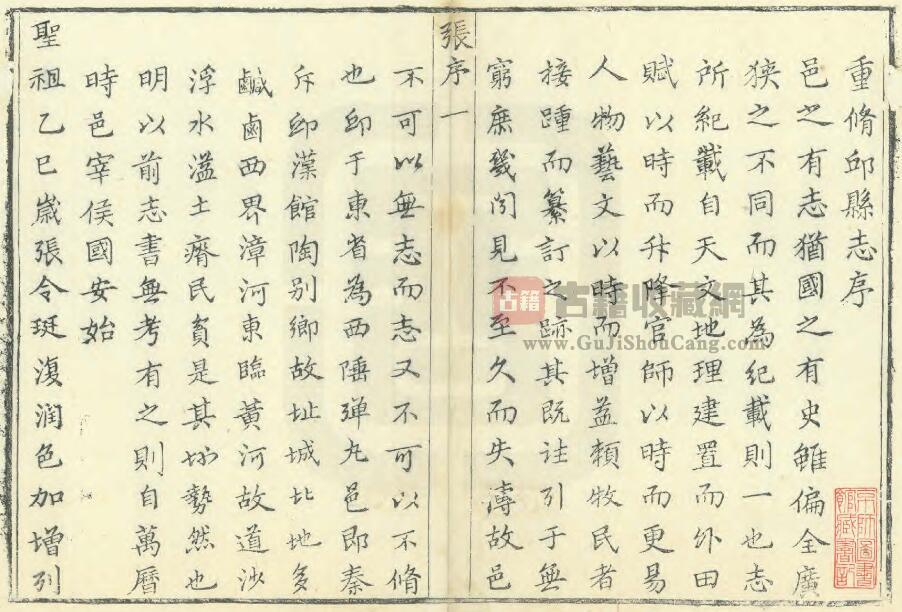 重脩邱縣志序
邑之有志猶國之有史雖偏全廣
狹之不同而其為紀載則一也志
所紀載自天文地理建置而外田
賦以時而升降官師以時而更易
人物藝文以時而增益頼牧民者
接踵而纂訂之跡其既往引于無
窮庶幾聞見不至久而失傳故邑
張序一
不可以無志而志又不可以不脩
也邱于東省為西陲弹丸邑即秦
斥邱漢館陶别鄉故址城北地多
鹹鹵西界漳河東臨黃河故道沙
浮水溢土瘠民貧是其形勢然也
明以前志書無考有之則自萬曆
時邑宰侯國安始
聖祖乙巳嵗張令珽復润色加增列
古籍
古籍收藏網
www.GuJiShouCang.com
京師圖書
館藏書記